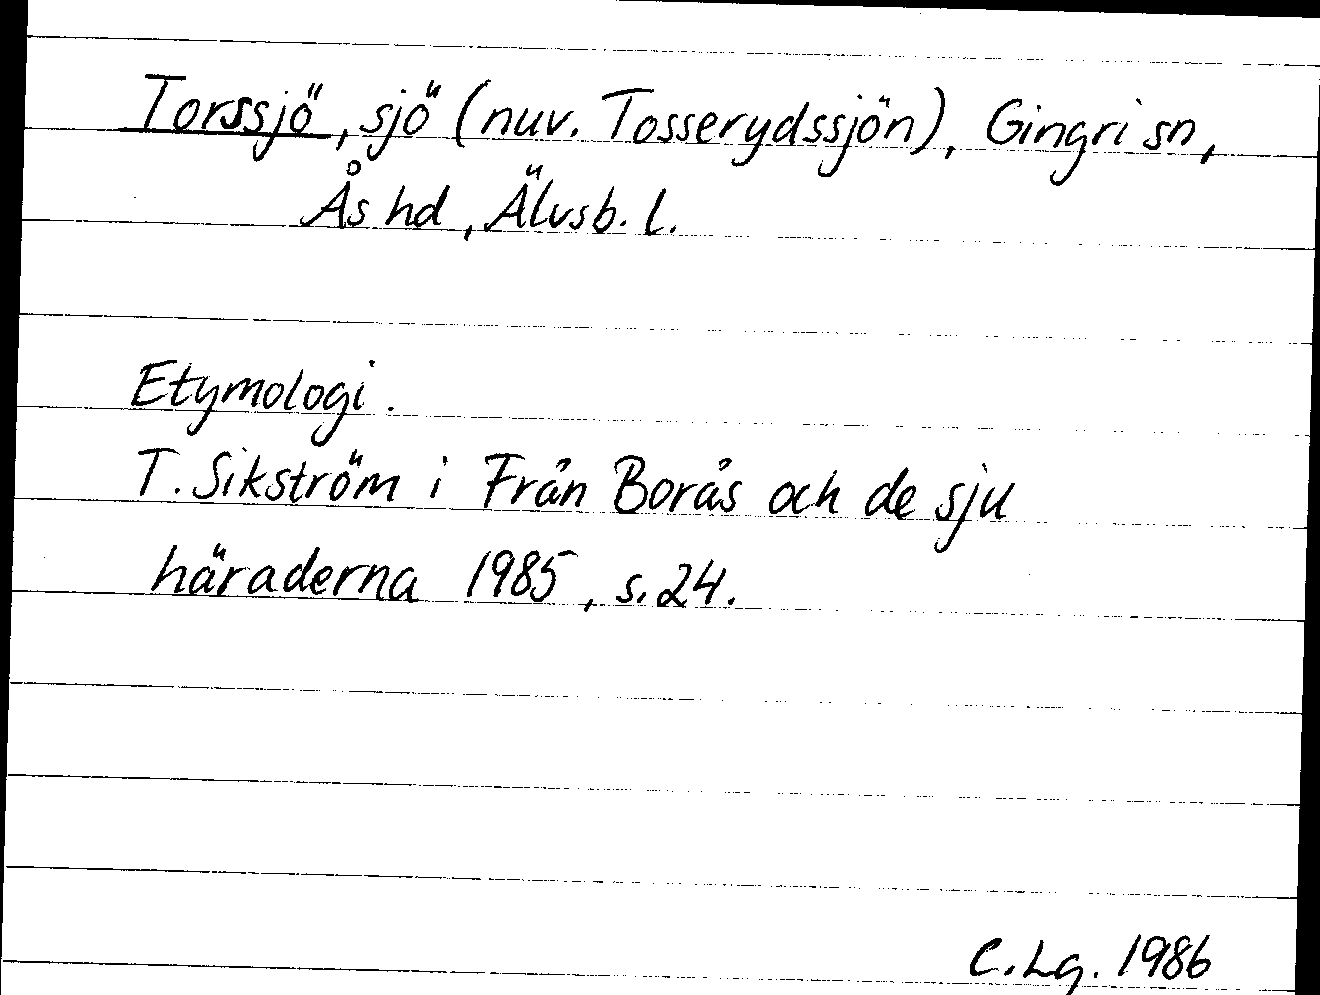 Torssjö, sjö (nuv. Tosserydssjön), Gingri sn,
Ås hd, Älvsb. l.
Etymologi.
T. Sikström i Från Borås och de sju
häraderna 1985, s. 24.
C. Lg. 1986